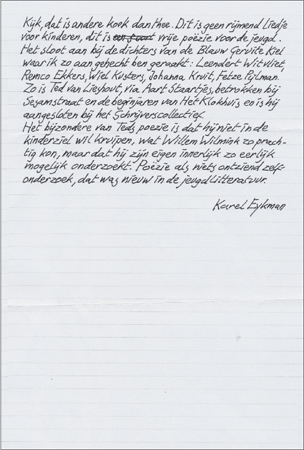 Kijk, dat is andere koek dan thee. Dit is geen rijmend liedje
voor kinderen, dit is vrije poëzie voor de jeugd.
Het sloot aan bij de dichters van de Blauw Geruite Kiel
waar ik zo aan gehecht ben geraakt: Leendert Witvliet,
Remco Ekkers, Wiel Kusters, Johanna Kruit, Fetze Pijlman.
Zo is Ted van Lieshout, via Aart Staartjes, betrokken bij
Sesamstraat en de beginjaren van Het Klokhuis en is hij
aangesloten bij het Schrijverscollectief.
Het bijzondere van Teds poëzie is dat hij niet in de
kinderziel wil kruipen, wat Willem Wilmink zo prach-
tig kon, maar dat hij zijn eigen innerlijk zo eerlijk
mogelijk onderzoekt. Poëzie als niets ontziend zelf-
onderzoek, dat was nieuw in de jeugdlitteratuur.
Karel Eykman